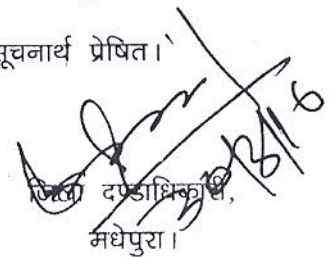 सूचनार्थ प्रेषित।
जिला दण्डाधिकारी,
मधेपुरा।